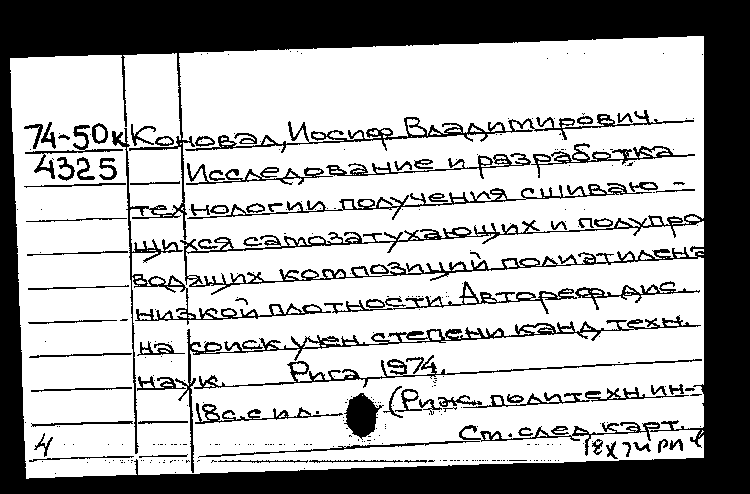 74-50к Коновал, Иосиф Владимирович.
4325 Исследование и разработка
технологии получения сшиваю-
щихся самозатухающих и полупро
водящих композиций полиэтилена
низкой плотности. Автореф. дис.
на соиск. учен. степени канд. техн.
наук. Рига, 1974.
18 с. с ил. (Риж. политехн. ин-т
См. след. карт.
4